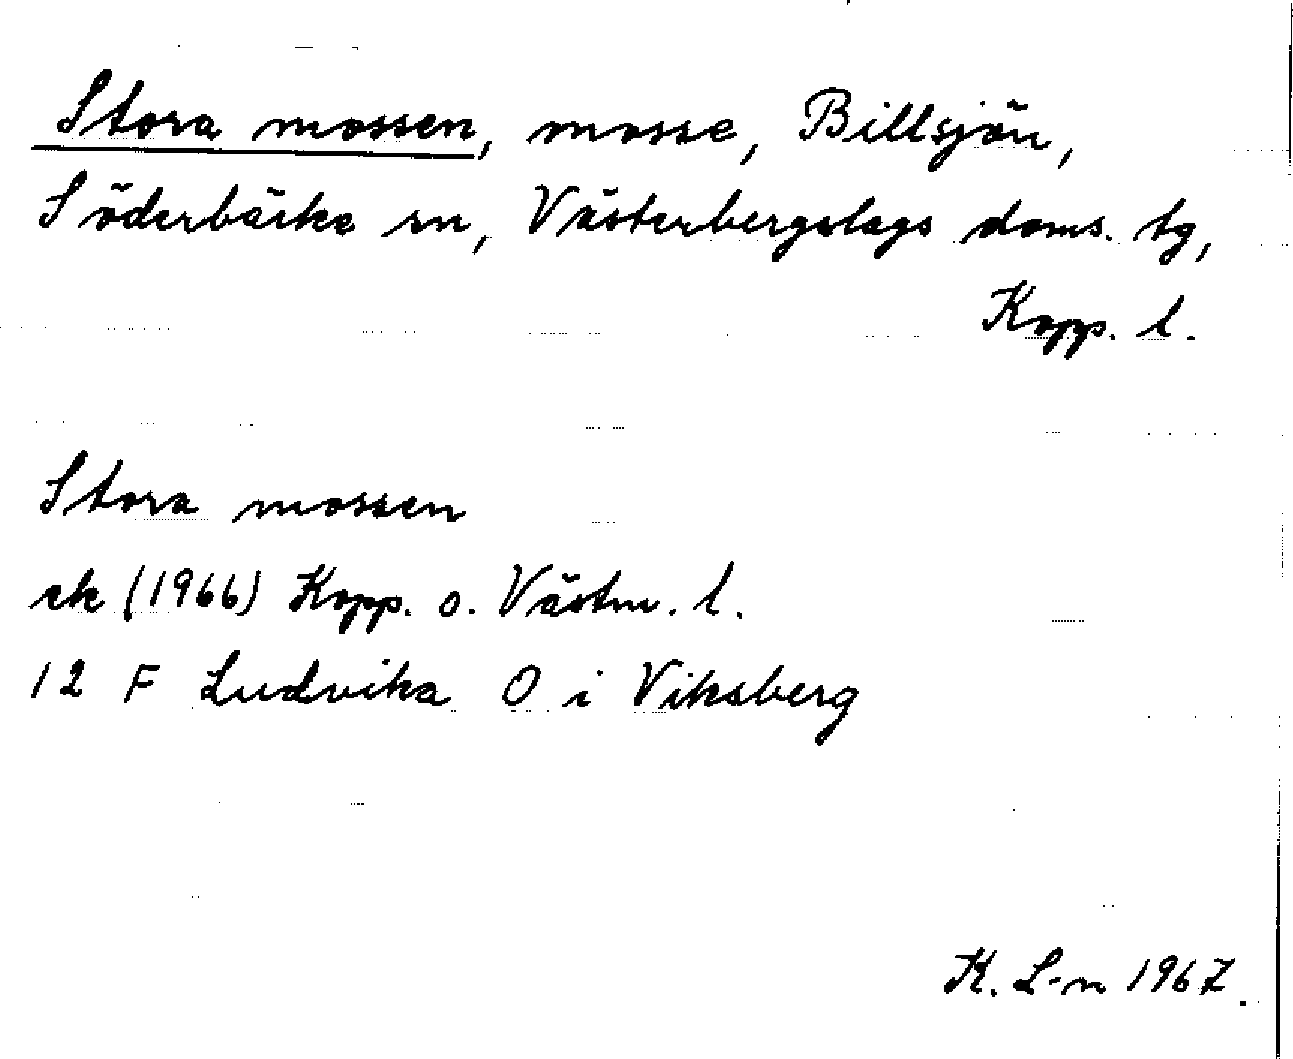 Stora mossen, mosse, Billsjön,
Söderbärke sn, Västerbergslags doms. tg,
Kopp. l.
Stora mossen
ek (1966) Kopp. o. Västm. l.
12 F Ludvika O i Viksberg
K. L-n 1967.